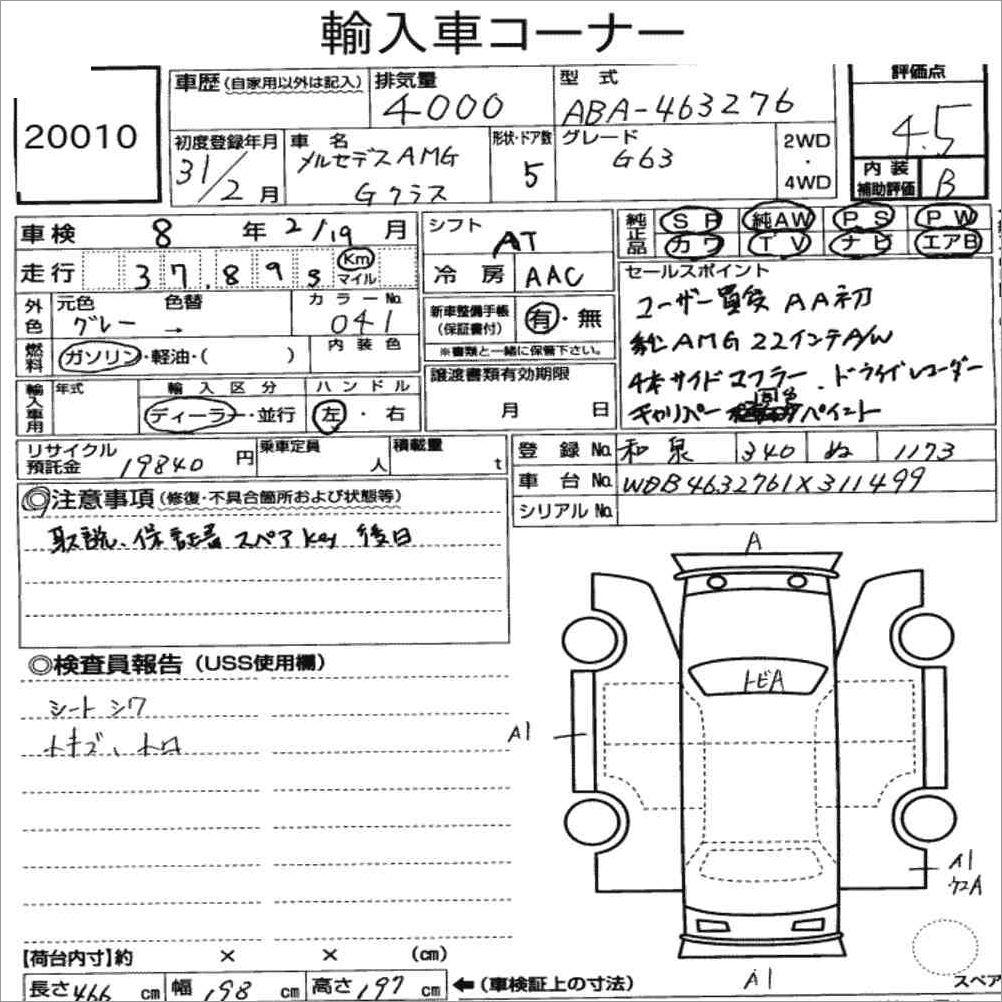 輸入車コーナー
20010
車歴(自家用以外は記入)
排気量
4000
型式
ABA-463276
評価点
4.5
初度登録年月
31/2月
車名
メルセデスAMG
Gクラス
形状・ドア数
5
グレード
G63
2WD
・
4WD
内装
補助評価
B
車検 8年 2/19月
走行 37,89 Km
マイル
シフト
AT
冷房 AAC
純正品 SR 純AW PS PW
カワ TV ナビ エアB
外色
元色 色替
グレー →
カラーNo.
041
新車整備手帳
(保証書付)
有・無
※書類と一緒に保管下さい。
セールスポイント
ユーザー買受 AA初
純AMG 22インチA/W
4本サイドマフラー、ドライブレコーダー
キャリパー ペイント
燃料
ガソリン・軽油・( )
内装色
譲渡書類有効期限
月 日
輸入車用
年式
輸入区分
ディーラー・並行
ハンドル
左・右
リサイクル
預託金 19840円
乗車定員
人
積載量
t
登録No. 和泉 340 ぬ 1173
車台No. WDB4632761X311499
シリアルNo.
◎注意事項(修復・不具合箇所および状態等)
取説、保証書 スペアkey 後日
◎検査員報告(USS使用欄)
シートシワ
トキズ、トロ
A
トビA
A1
A1
ワエA
A1
スペア
【荷台内寸】約 × × (cm)
長さ466cm 幅198cm 高さ197cm
←(車検証上の寸法)